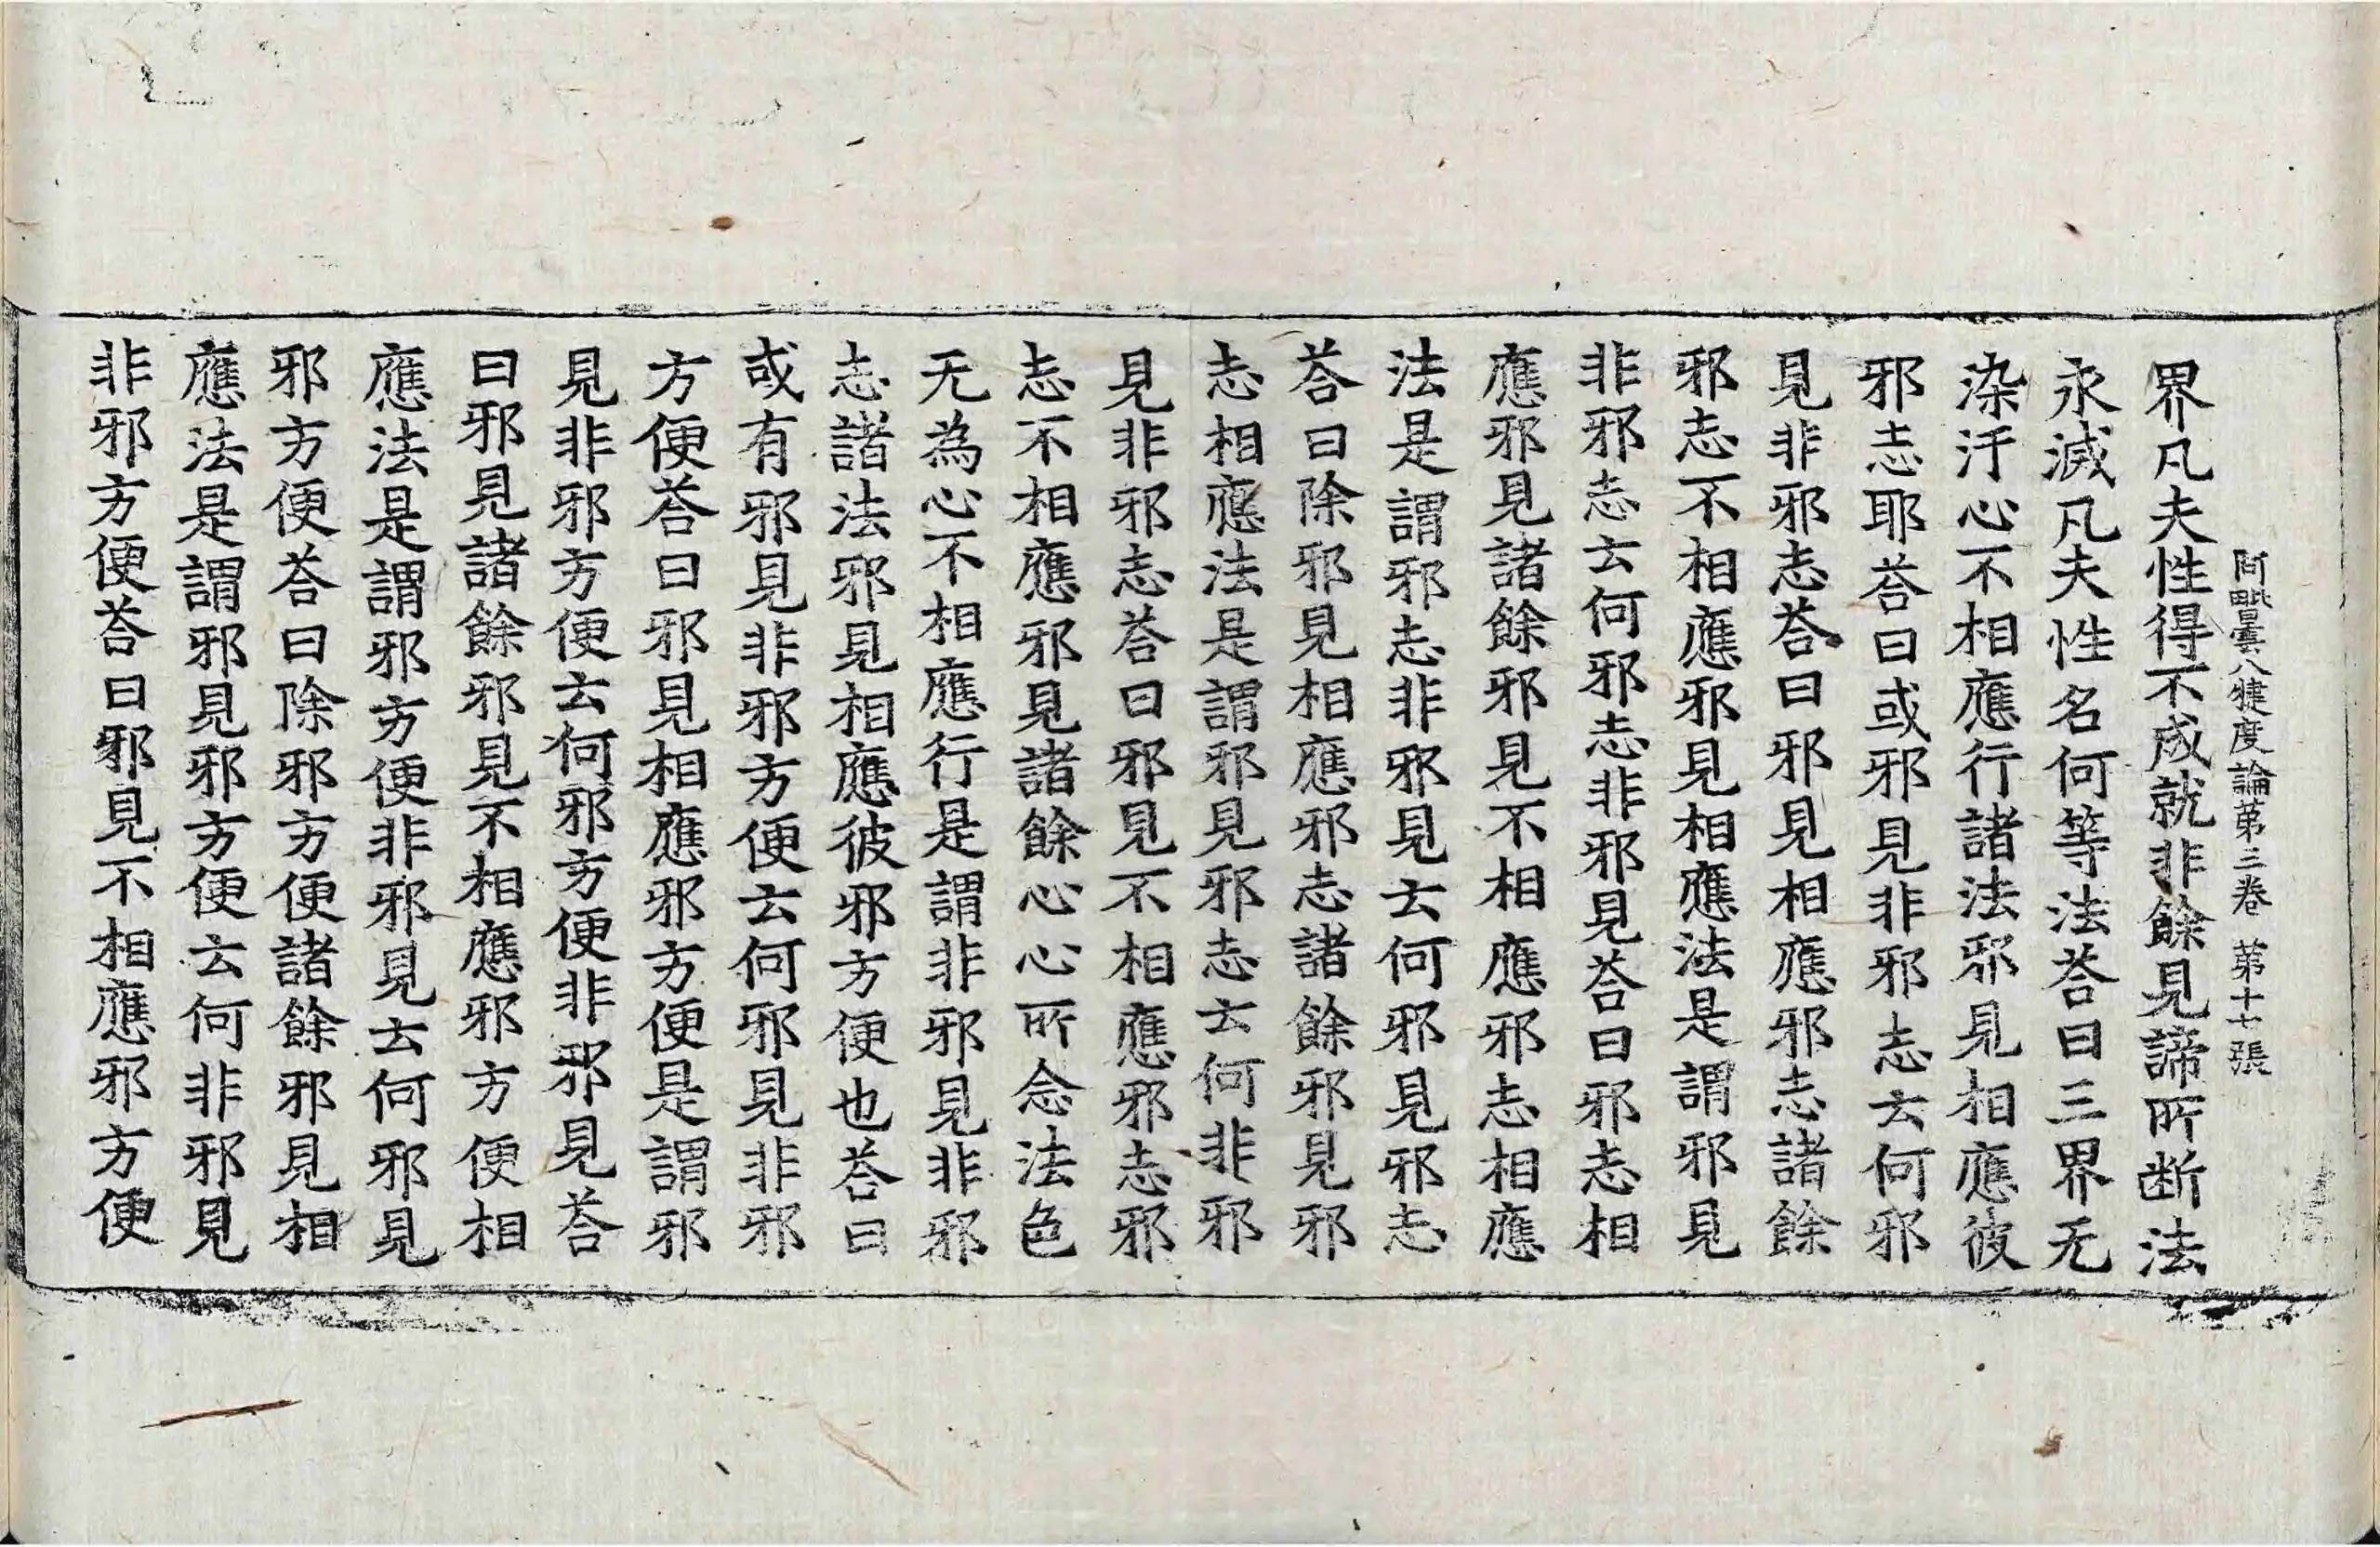 阿毗曇八犍度論第三卷 第十七張
界凡夫性得不成就非餘見諦所断法
永滅凡夫性名何等法荅曰三界无
染汙心不相應行諸法邪見相應彼
邪志耶荅曰或邪見非邪志云何邪
見非邪志荅曰邪見相應邪志諸餘
邪志不相應邪見相應法是謂邪見
非邪志云何邪志非邪見荅曰邪志相
應邪見諸餘邪見不相應邪志相應
法是謂邪志非邪見云何邪見邪志
荅曰除邪見相應邪志諸餘邪見邪
志相應法是謂邪見邪志云何非邪
見非邪志荅曰邪見不相應邪志邪
志不相應邪見諸餘心心所念法色
无為心不相應行是謂非邪見非邪
志諸法邪見相應彼邪方便也荅曰
或有邪見非邪方便云何邪見非邪
方便荅曰邪見相應邪方便是謂邪
見非邪方便云何邪方便非邪見荅
曰邪見諸餘邪見不相應邪方便相
應法是謂邪方便非邪見云何邪見
邪方便荅曰除邪方便諸餘邪見相
應法是謂邪見邪方便云何非邪見
非邪方便荅曰邪見不相應邪方便